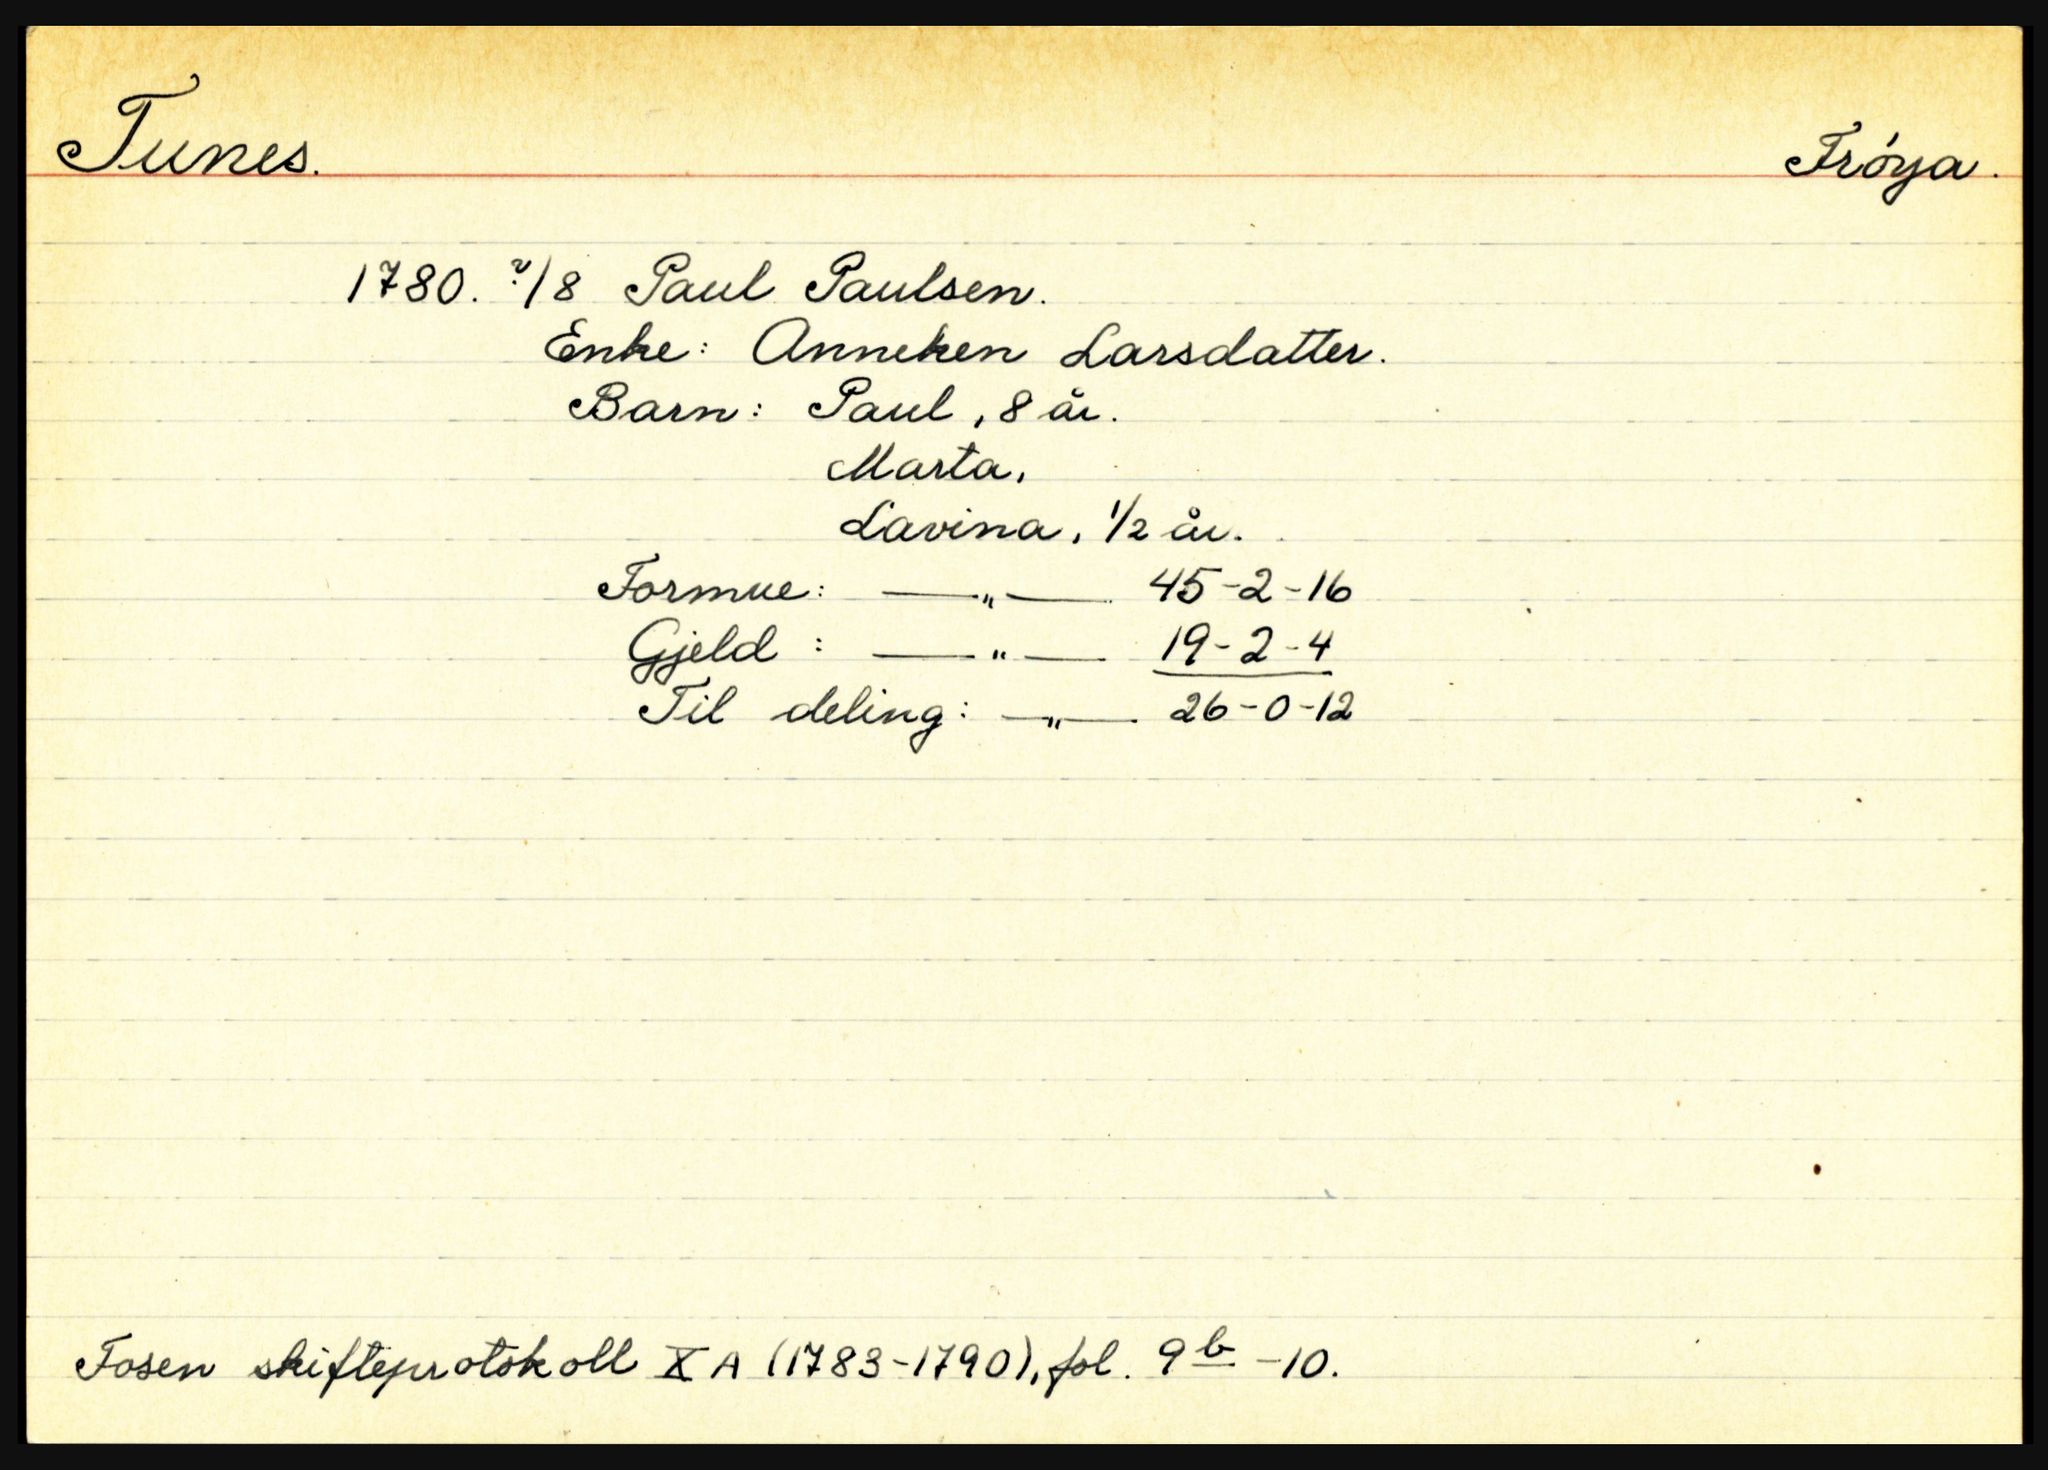 Tunes.
Fröya.
1780. ?/8 Paul Paulsen.
Enke: Anneken Larsdatter.
Barn: Paul, 8 år.
Marta,
Lavina, 1/2 år.
Formue: —"— 45-2-16
Gjeld: —"— 19-2-4
Til deling: —"— 26-0-12
Fosen skifteprotokoll X A (1783-1790), fol. 9b-10.